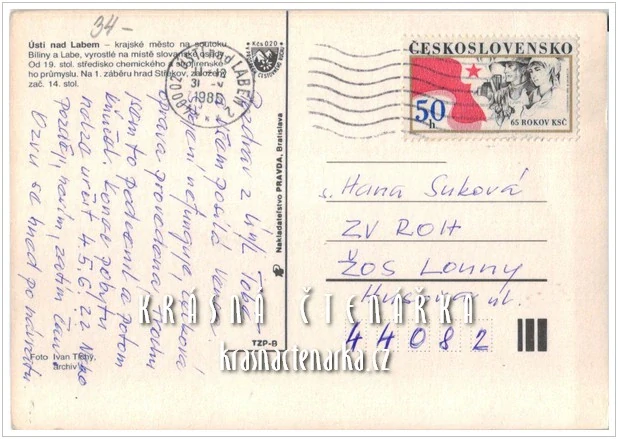 34-
Ústí nad Labem – krajské město na soutoku
Bíliny a Labe, vyrostlé na místě slovanské osady.
Od 19. stol. středisko chemického a strojírenské-
ho průmyslu. Na 1. záběru hrad Střekov, založený
zač. 14. stol.
Kčs 0,20
400 02 ÚSTÍ nad LABEM 2
1985
Pozdrav z
Vám posílá
nefunguje,
oprava provedena.
jsem to podcenil a potom
konec pobytu
nelze určit 4.5.6.
později, nevím, zatím čau
Ozvu se hned po návratu
Foto Ivan
archiv
Nakladatelství PRAVDA, Bratislava
TZP-B
ČESKOSLOVENSKO
50 h
65 ROKOV KSČ
s. Hana Suková
ZV ROH
ŽOS Louny
Husova ul.
44082
KRÁSNÁ ČTENÁŘKA
krasnactenarka.cz